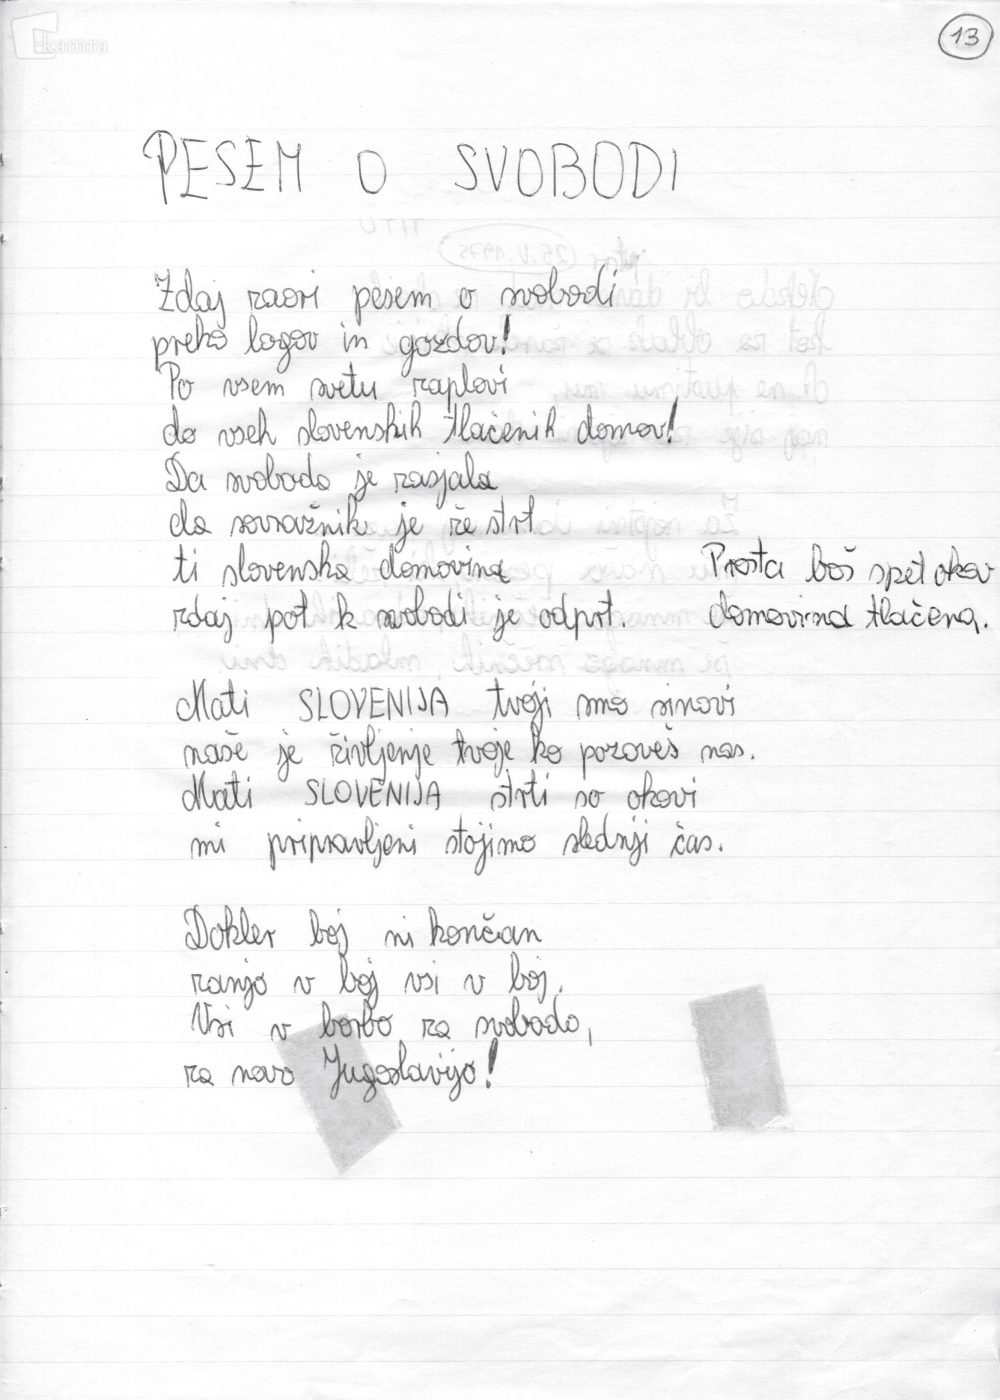 kamra
13
PESEM O SVOBODI
Zdaj zaori pesem o svobodi
preko logov in gozdov!
Po vsem svetu zaplovi
do vseh slovenskih tlačenih domov!
Da svoboda je zasjala
da sovražnik je že strt
ti slovenska domovina
zdaj pot k svobodi je odprt.
Prosta boš spet okov
domovina tlačena.
Mati SLOVENIJA tvoji smo sinovi
naše je življenje tvoje ko pozoveš nas.
Mati SLOVENIJA strti so okovi
mi pripravljeni stojimo slednji čas.
Dokler boj ni končan
zanjo v boj vsi v boj.
Vsi v borbo za svobodo,
za novo Jugoslavijo!